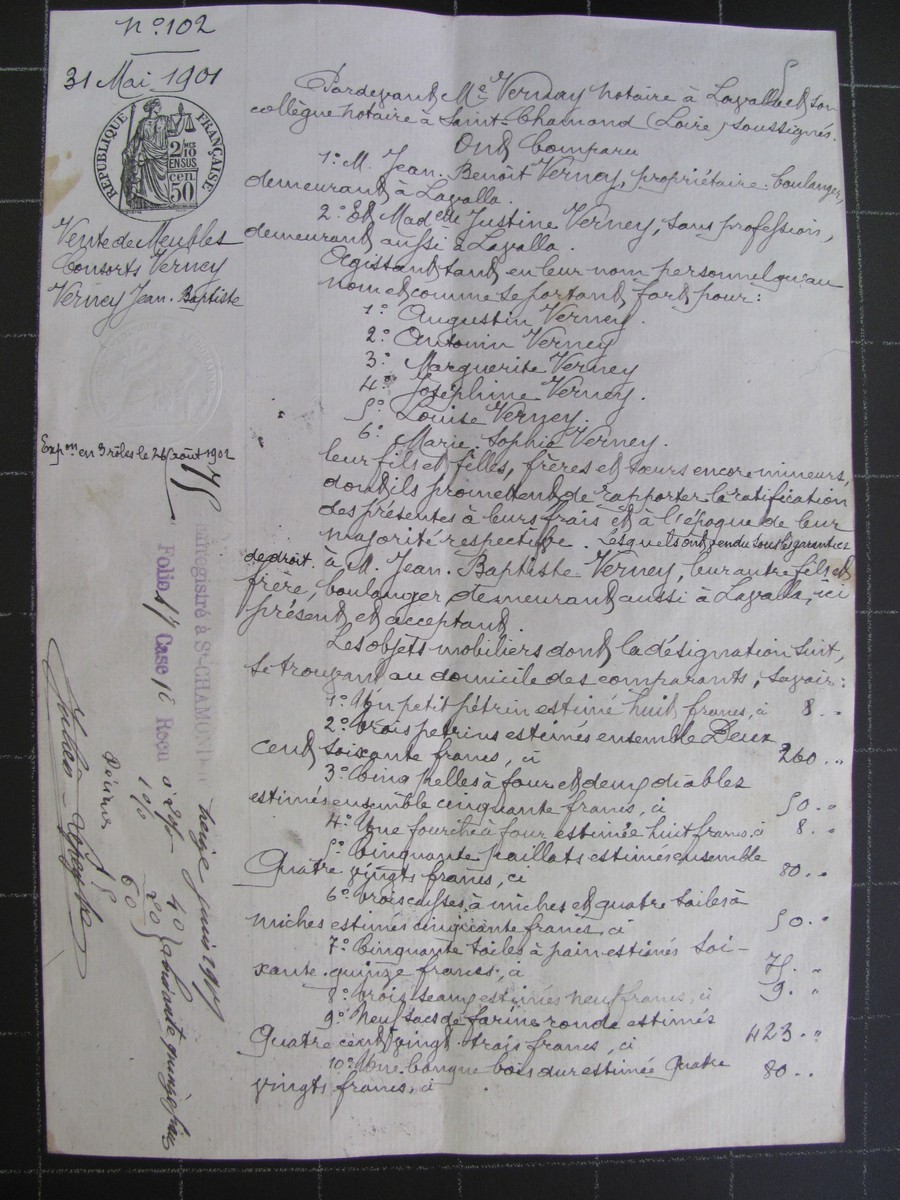 N° 102
31 Mai 1901
RÉPUBLIQUE FRANÇAISE
2/10 MES
EN SUS
CEN.
50
Vente de Meubles
Consorts Verney
Verney Jean-Baptiste
Expon en 3 rôles le 26 août 1902
Pardevant Me Vernay notaire à Lavalla et son
collègue notaire à Saint-Chamond (Loire) soussignés.
Ont Comparu
1° M. Jean-Benoît Verney, propriétaire-boulanger,
demeurant à Lavalla.
2° Et Madelle Justine Verney, sans profession,
demeurant aussi à Lavalla.
Agissant tant en leur nom personnel qu'au
nom et comme se portant fort pour:
1° Augustin Verney.
2° Antonin Verney
3° Marguerite Verney
4° Joséphine Verney.
5° Louise Verney.
6° Marie-Sophie Verney.
leur fils et filles, frères et sœurs encore mineurs,
dont ils promettent de rapporter la ratification
des présentes à leurs frais et à l'époque de leur
majorité respective. Lesquels ont vendu sous les garanties
de droit à M. Jean-Baptiste Verney, leur autre fils et
frère, boulanger, demeurant aussi à Lavalla, ici
présent et acceptant.
Les objets mobiliers dont la désignation suit,
se trouvant au domicile des comparants, savoir:
1° Un petit pétrin estimé huit francs, ci 8 ..
2° Trois pétrins estimés ensemble Deux
cent soixante francs, ci 260 ..
3° Cinq pelles à four et deux diables
estimés ensemble cinquante francs, ci 50 ..
4° Une fourche à four estimée huit francs, ci 8 ..
5° Cinquante paillats estimés ensemble
Quatre vingts francs, ci 80 ..
6° Trois caisses à miches et quatre toiles à
miches estimés cinquante francs, ci 50 ..
7° Cinquante toiles à pain estimés Soi-
xante-quinze francs, ci 75 ..
8° Trois seaux estimés neuf francs, ci 9 ..
9° Neuf sacs de farine ronde estimés
Quatre cent vingt-trois francs, ci 423 ..
10° Une banque bois dur estimée Quatre
vingts francs, ci 80 ..
Enregistré à St-CHAMOND
Folio Case Reçu